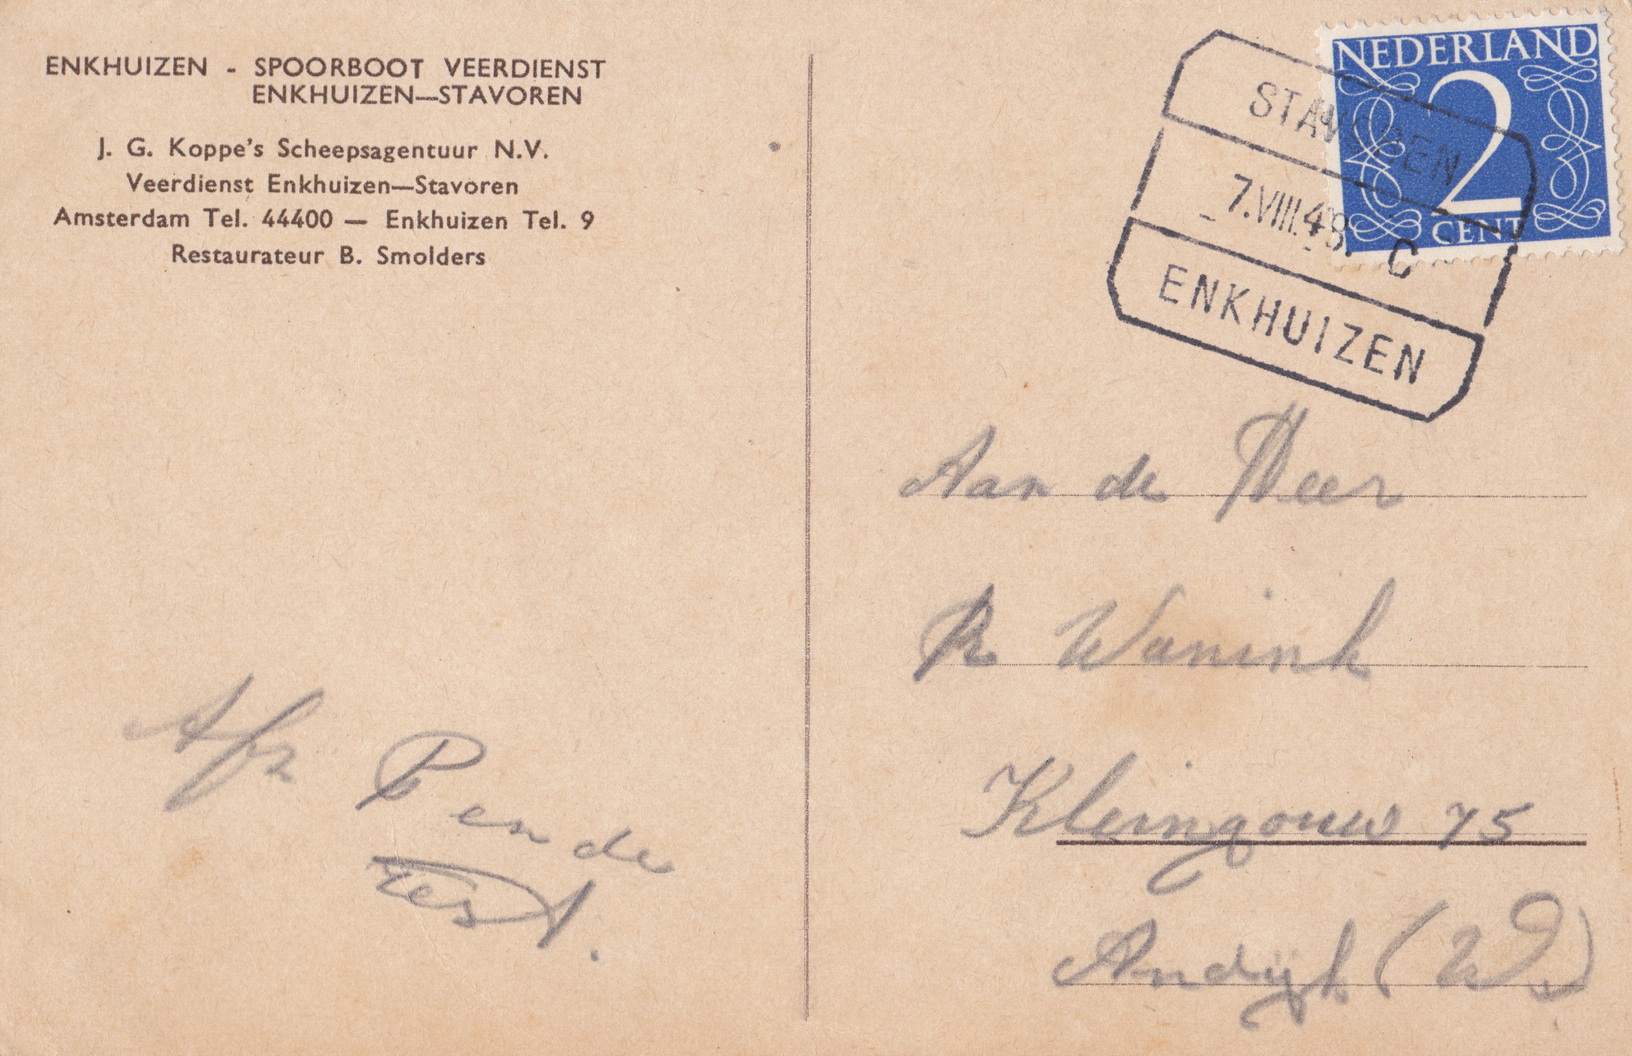 ENKHUIZEN - SPOORBOOT VEERDIENST
ENKHUIZEN—STAVOREN
J. G. Koppe's Scheepsagentuur N.V.
Veerdienst Enkhuizen—Stavoren
Amsterdam Tel. 44400 — Enkhuizen Tel. 9
Restaurateur B. Smolders
NEDERLAND
2
CENT
STAVOREN
7.VIII.48 C
ENKHUIZEN
Aan de Heer
R Wunink
Kleingouw 75
Andijk (W.)
Afz P en de
rest.